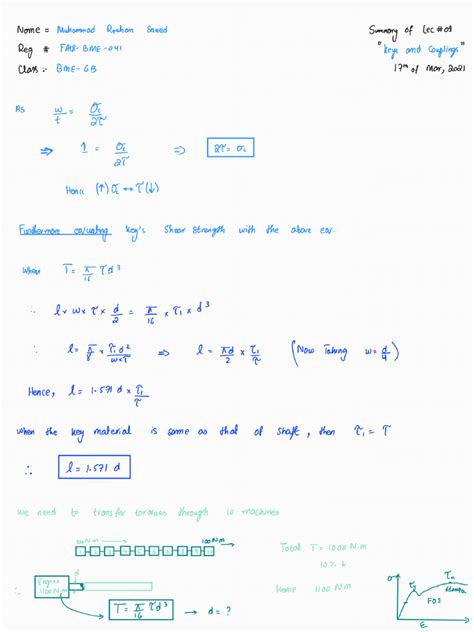 Name = Muhammad Roshan Saeed
Summary of Lec #09
Reg # FA18-BME-041
"Keys and Couplings"
Class:- BME-6B
17th of Mar, 2021
As w/t = σc/2τ
⇒ 1 = σc/2τ ⇒ 2τ = σc
Hence (↑) σc ↔ τ (↓)
Furthermore key's Shear Strength with the above eq.
when T = π/16 τ d³
∴ l × w × τ × d/2 = π/16 × τ₁ × d³
∴ l = π/8 × τ₁ d²/w×τ ⇒ l = πd/2 × τ₁/τ (Now Taking w = d/4)
Hence, l = 1.571 d × τ₁/τ
when the key material is same as that of shaft, then τ₁ = τ
∴ l = 1.571 d
we need to transfer torques through 10 machines
100 N.m 100 N.m
Total T = 1000 N.m
10% ↓
Hence 1100 N.m
∴ Engine 1100 N.m
T = π/16 τ d³ → d = ?
σ
FOS
E